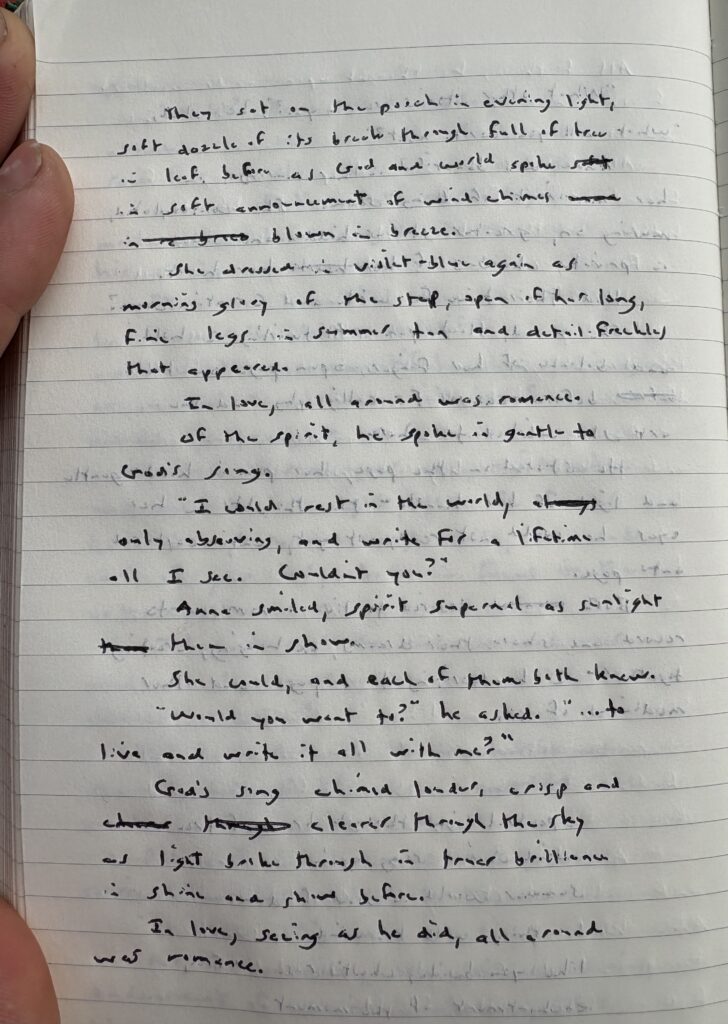 They sat on the porch in evening light,
soft dazzle of its break through full of tree
in leaf, before as God and world spoke soft
in soft announcement of wind chimes
in a breez blown in breeze.
She dressed in violet-blue again as
morning glory of the step, open of her long,
fine legs in summer tan and detail freckles
that appeared.
In love, all around was romance.
Of the spirit, he spoke in gentle to
God's song.
"I could rest in the world, always
only observing, and write for a lifetime
all I see. Couldn't you?"
Anne smiled, spirit supernal as sunlight
them in show.
She could, and each of them both knew.
"Would you want to?" he asked. "...to
live and write it all with me?"
God's song chimed louder, crisp and
clearer through the sky
as light broke through in truer brilliance
in shine and show before.
In love, seeing as he did, all around
was romance.